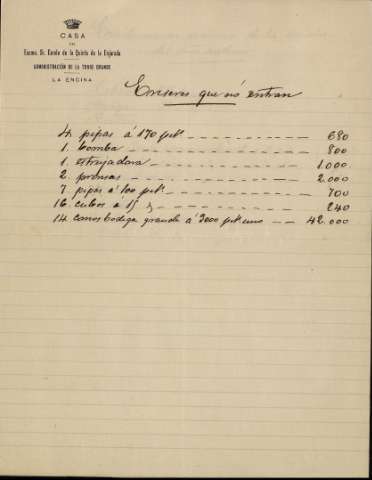 CASA
DEL
Excmo. Sr. Conde de la Quinta de la Enjarada
ADMINISTRACIÓN DE LA TORRE GRANDE
LA ENCINA
Enseres que no entran
4 pipas á 170 pts 680
1. bomba 800
1. estrujadora 1.000
2. prensas 2.000
7 pipas á 100 pts 700
16 cubos á 15 240
14 conos bodega grande á 3000 pts uno 42.000